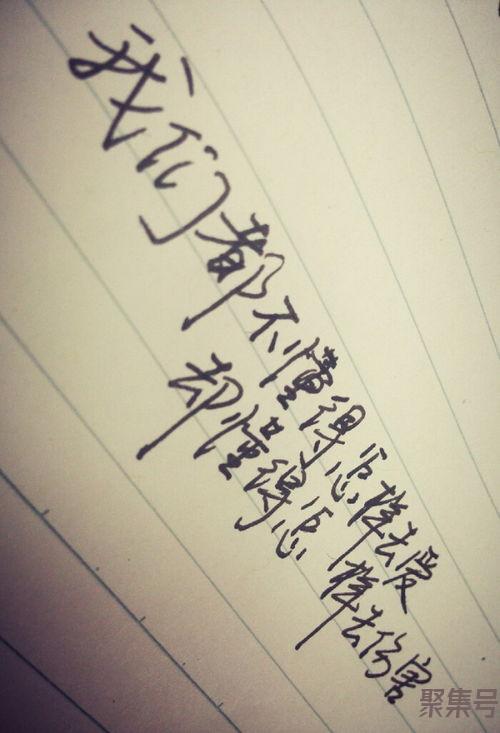 我们都不懂得怎样去爱
却懂得怎样去伤害
聚集号